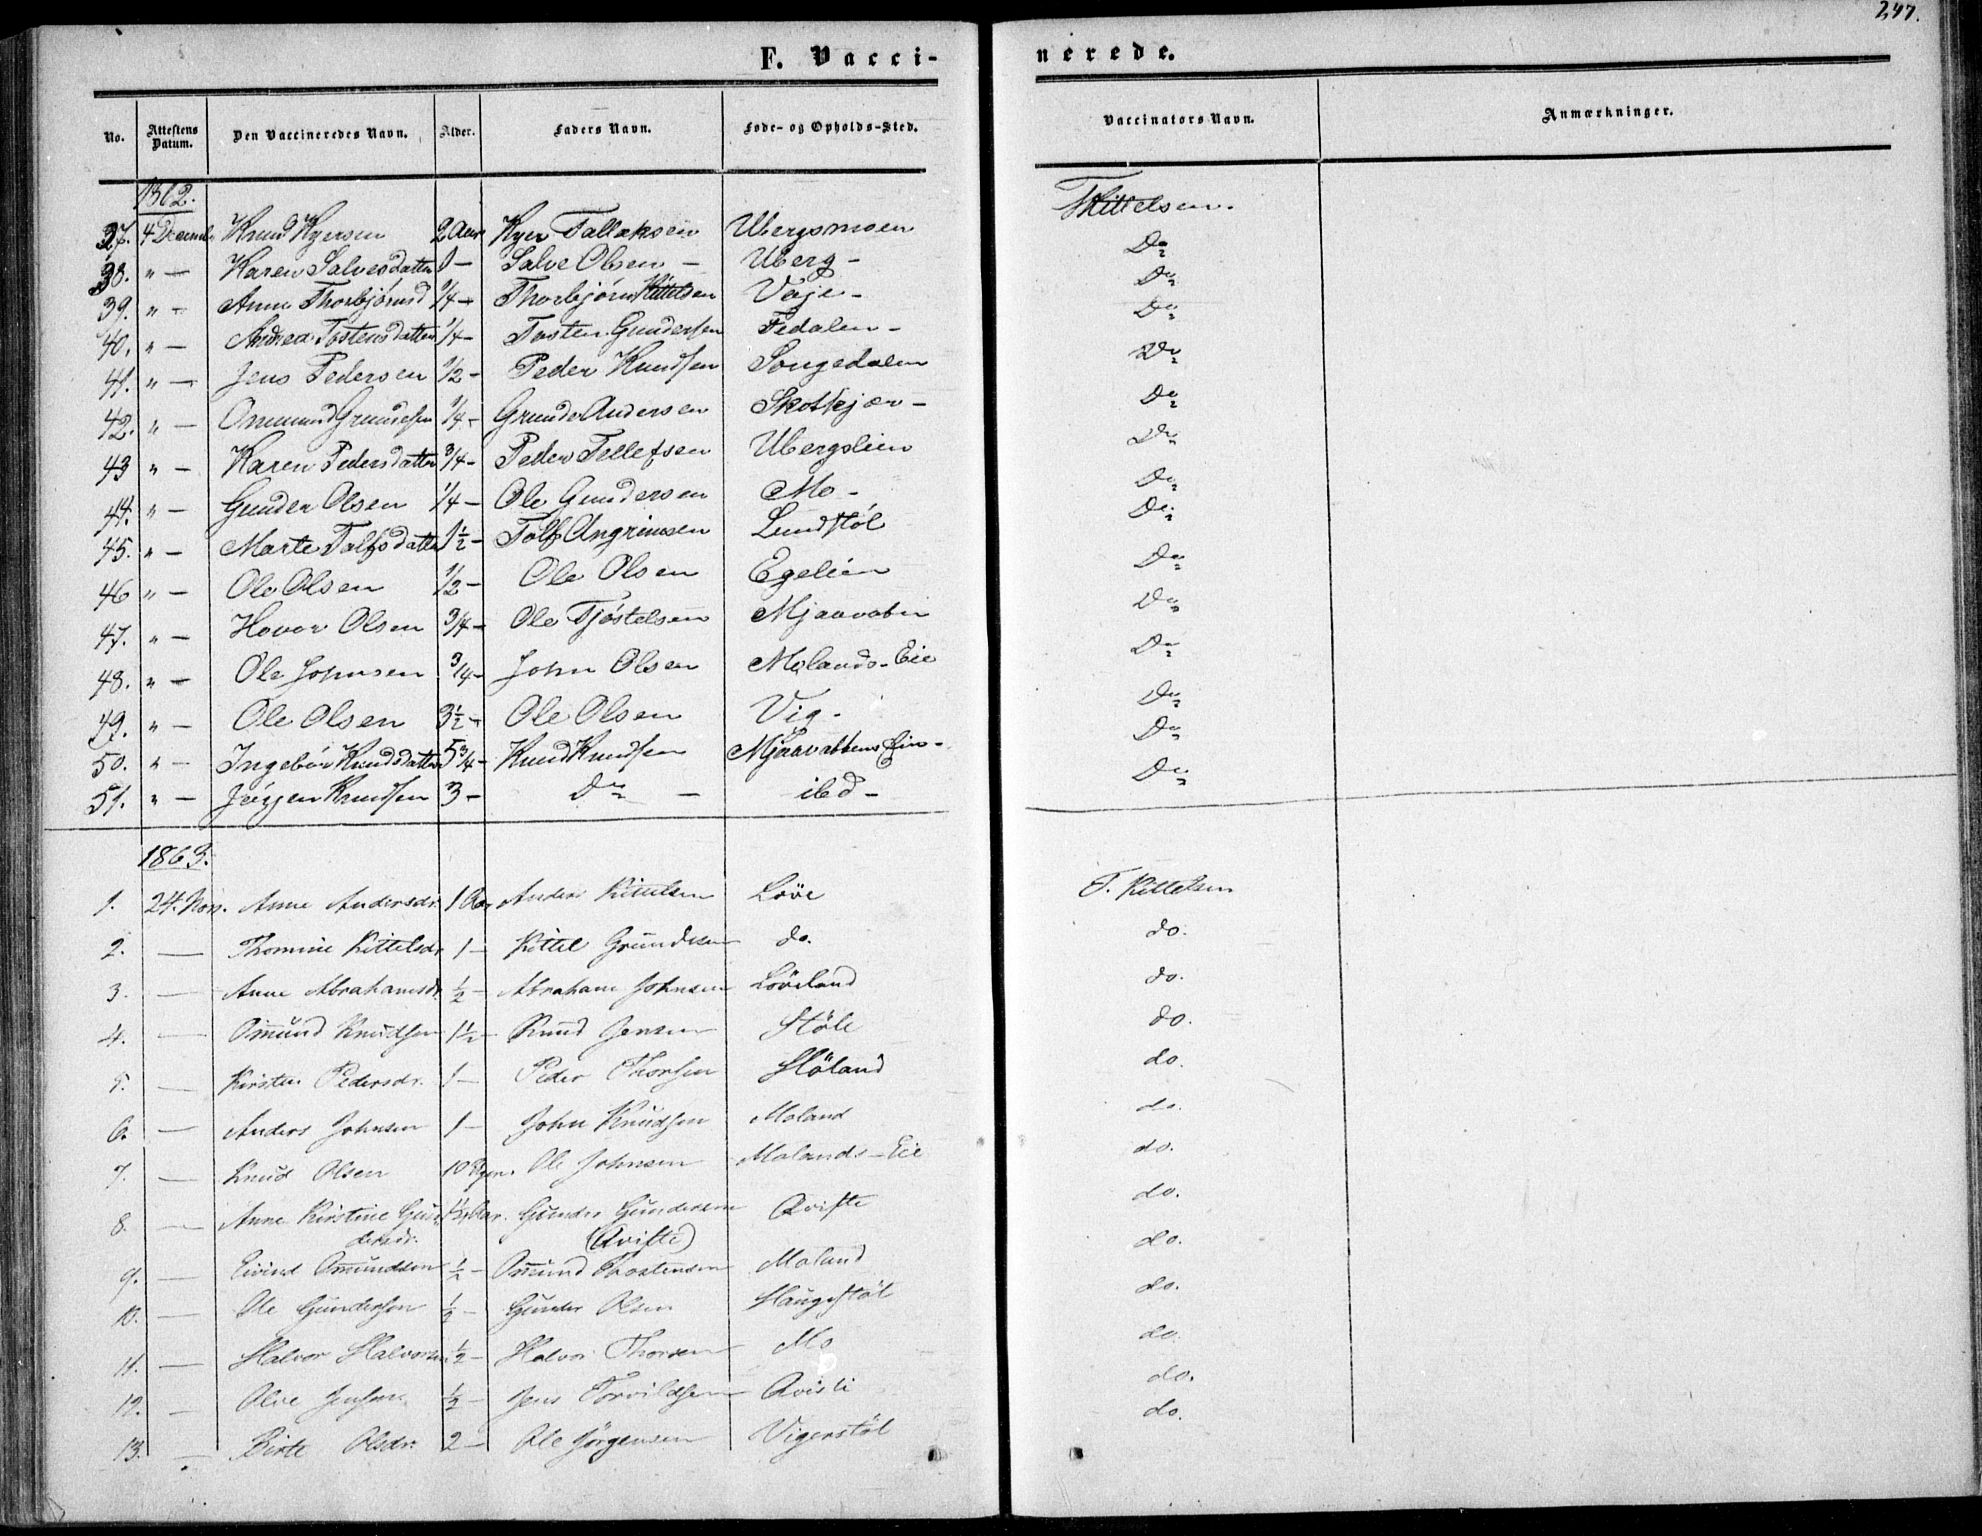 247.
F. Vacci-
nerede.
No. Attestens Datum. Den Vaccineredes Navn. Alder. Faders Navn. Føde- og Opholds-Sted. Vaccinators Navn. Anmærkninger.
1862.
37. 4 Decmb. Knud Kyersen 2 Aar Kyer Tallaksen Ubergsmoen TKittelsen.
38. " — Karen Salvesdatter 1 — Salve Olsen — Uberg - Do
39. " — Anne Thorbjørnsd 1/4 — Thorbjørn Kittelsen Veje - Do
40. " — Andrea Tostensdatter 1/4 - Tosten Gundersen Fedalen - Do
41. " — Jens Pedersen 1/2 - Peder Knudsen Songedalen Do
42. " — Ommund Grundesen 1/4 - Grunde Andersen Skotkjær - Do
43 " — Karen Pedersdatter 3/4 - Peder Tellefsen Ubergslien Do
44. " — Gunder Olsen 1/4 — Ole Gundersen Mo - Do
45. " — Marte Tolfsdatter 1 1/2 - Tolf Angrimsen Lundstøl Do
46 " — Ole Olsen 1/2 - Ole Olsen Egelien Do
47. " — Hovor Olsen 3/4 - Ole Tjøstelsen Mjaavatn Do
48. " — Ole Johnsen 3/4 - John Olsen Molands-Eie Do
49. " — Ole Olsen 3 1/2 - Ole Olsen Vig - Do
50. " — Ingebor Knudsdatter 5 3/4 - Knud Knudsen Mjaavattens Eie - Do
51. " — Jørgen Knudsen 3 - Do — ibd - Do
1863.
1. 24. Nov. Anne Andersdr. 1 Aar Anders Kittelsen Løve T. Kittelsen
2. — Thomine Kittelsdr 1 — Kittel Grundesen do. do.
3. — Anne Abrahamsdr. 1/2 — Abraham Johnsen Løveland do.
4. — Omund Knudsen 1 1/2 — Knud Jensen Støle do.
5. — Kirsten Pedersdr. 1 — Peder Thorsen Høland do.
6. — Anders Johnsen 1 — John Knudsen Moland do.
7. — Knud Olsen 10 Ole Johnsen Molands-Eie do.
8. — Anne Kirstine Gun- 1 1/2 Aar. Gunder Gundersen Qviste do.
dersdr. (Qviste)
9. — Eivind Omundsen 1/2 — Omund Thostensen Moland do.
10. — Ole Gundersen 1/2 — Gunder Olsen Haugestøl do.
11. — Halvor Halvorsen 1/2 — Halvor Thorsen Mo do.
12. — Olve Jensen 1/2 — Jens Torvildsen Qvisti do.
13. — Birte Olsdr. 2 — Ole Jørgensen Vigerstøl do.